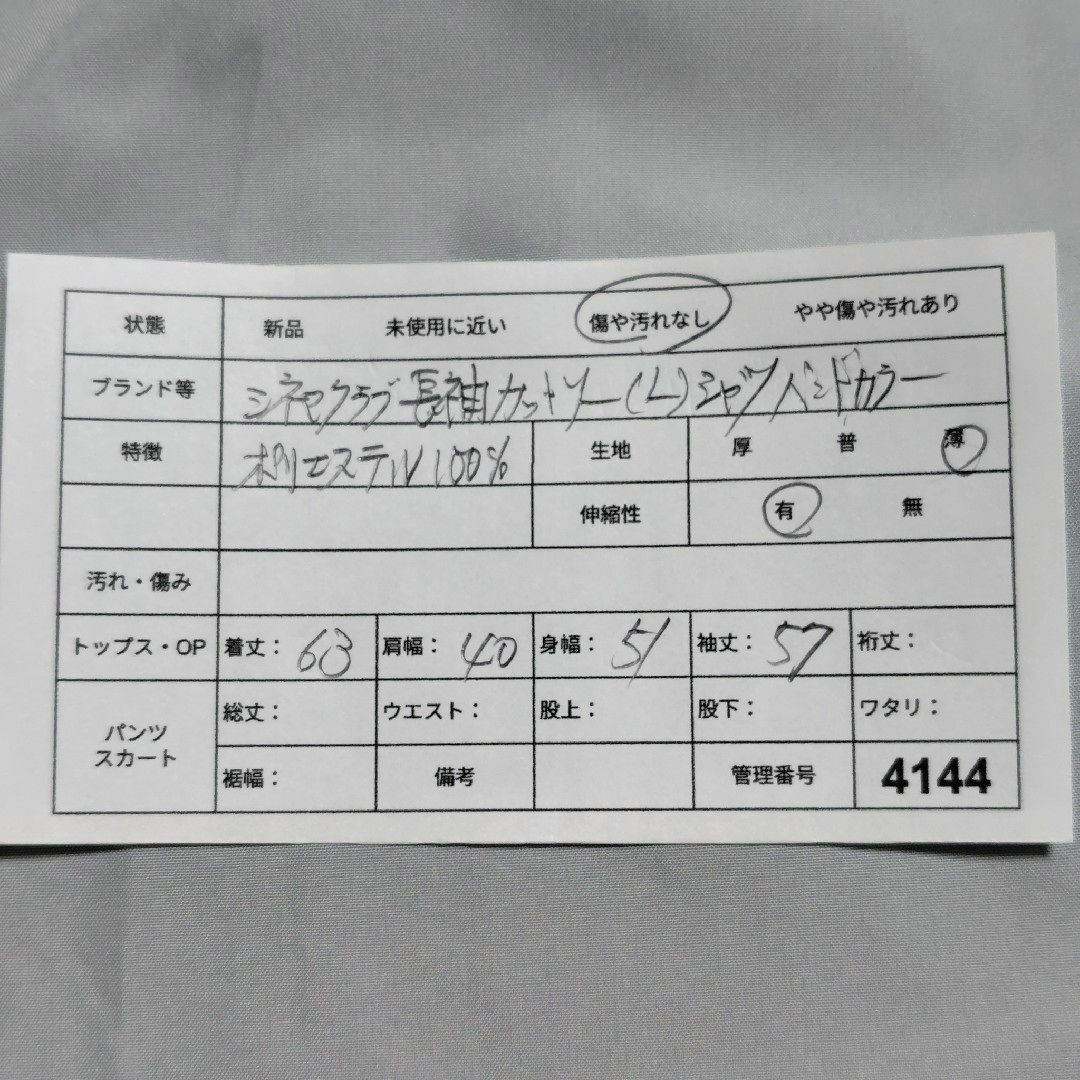 状態 新品 未使用に近い 傷や汚れなし やや傷や汚れあり
ブランド等 シネマクラブ長袖カットソー(L)シャツバンドカラー
特徴 ポリエステル100% 生地 厚 普 薄
伸縮性 有 無
汚れ・傷み
トップス・OP 着丈： 63 肩幅： 40 身幅： 51 袖丈： 57 裄丈：
パンツ 総丈： ウエスト： 股上： 股下： ワタリ：
スカート 裾幅： 備考 管理番号 4144